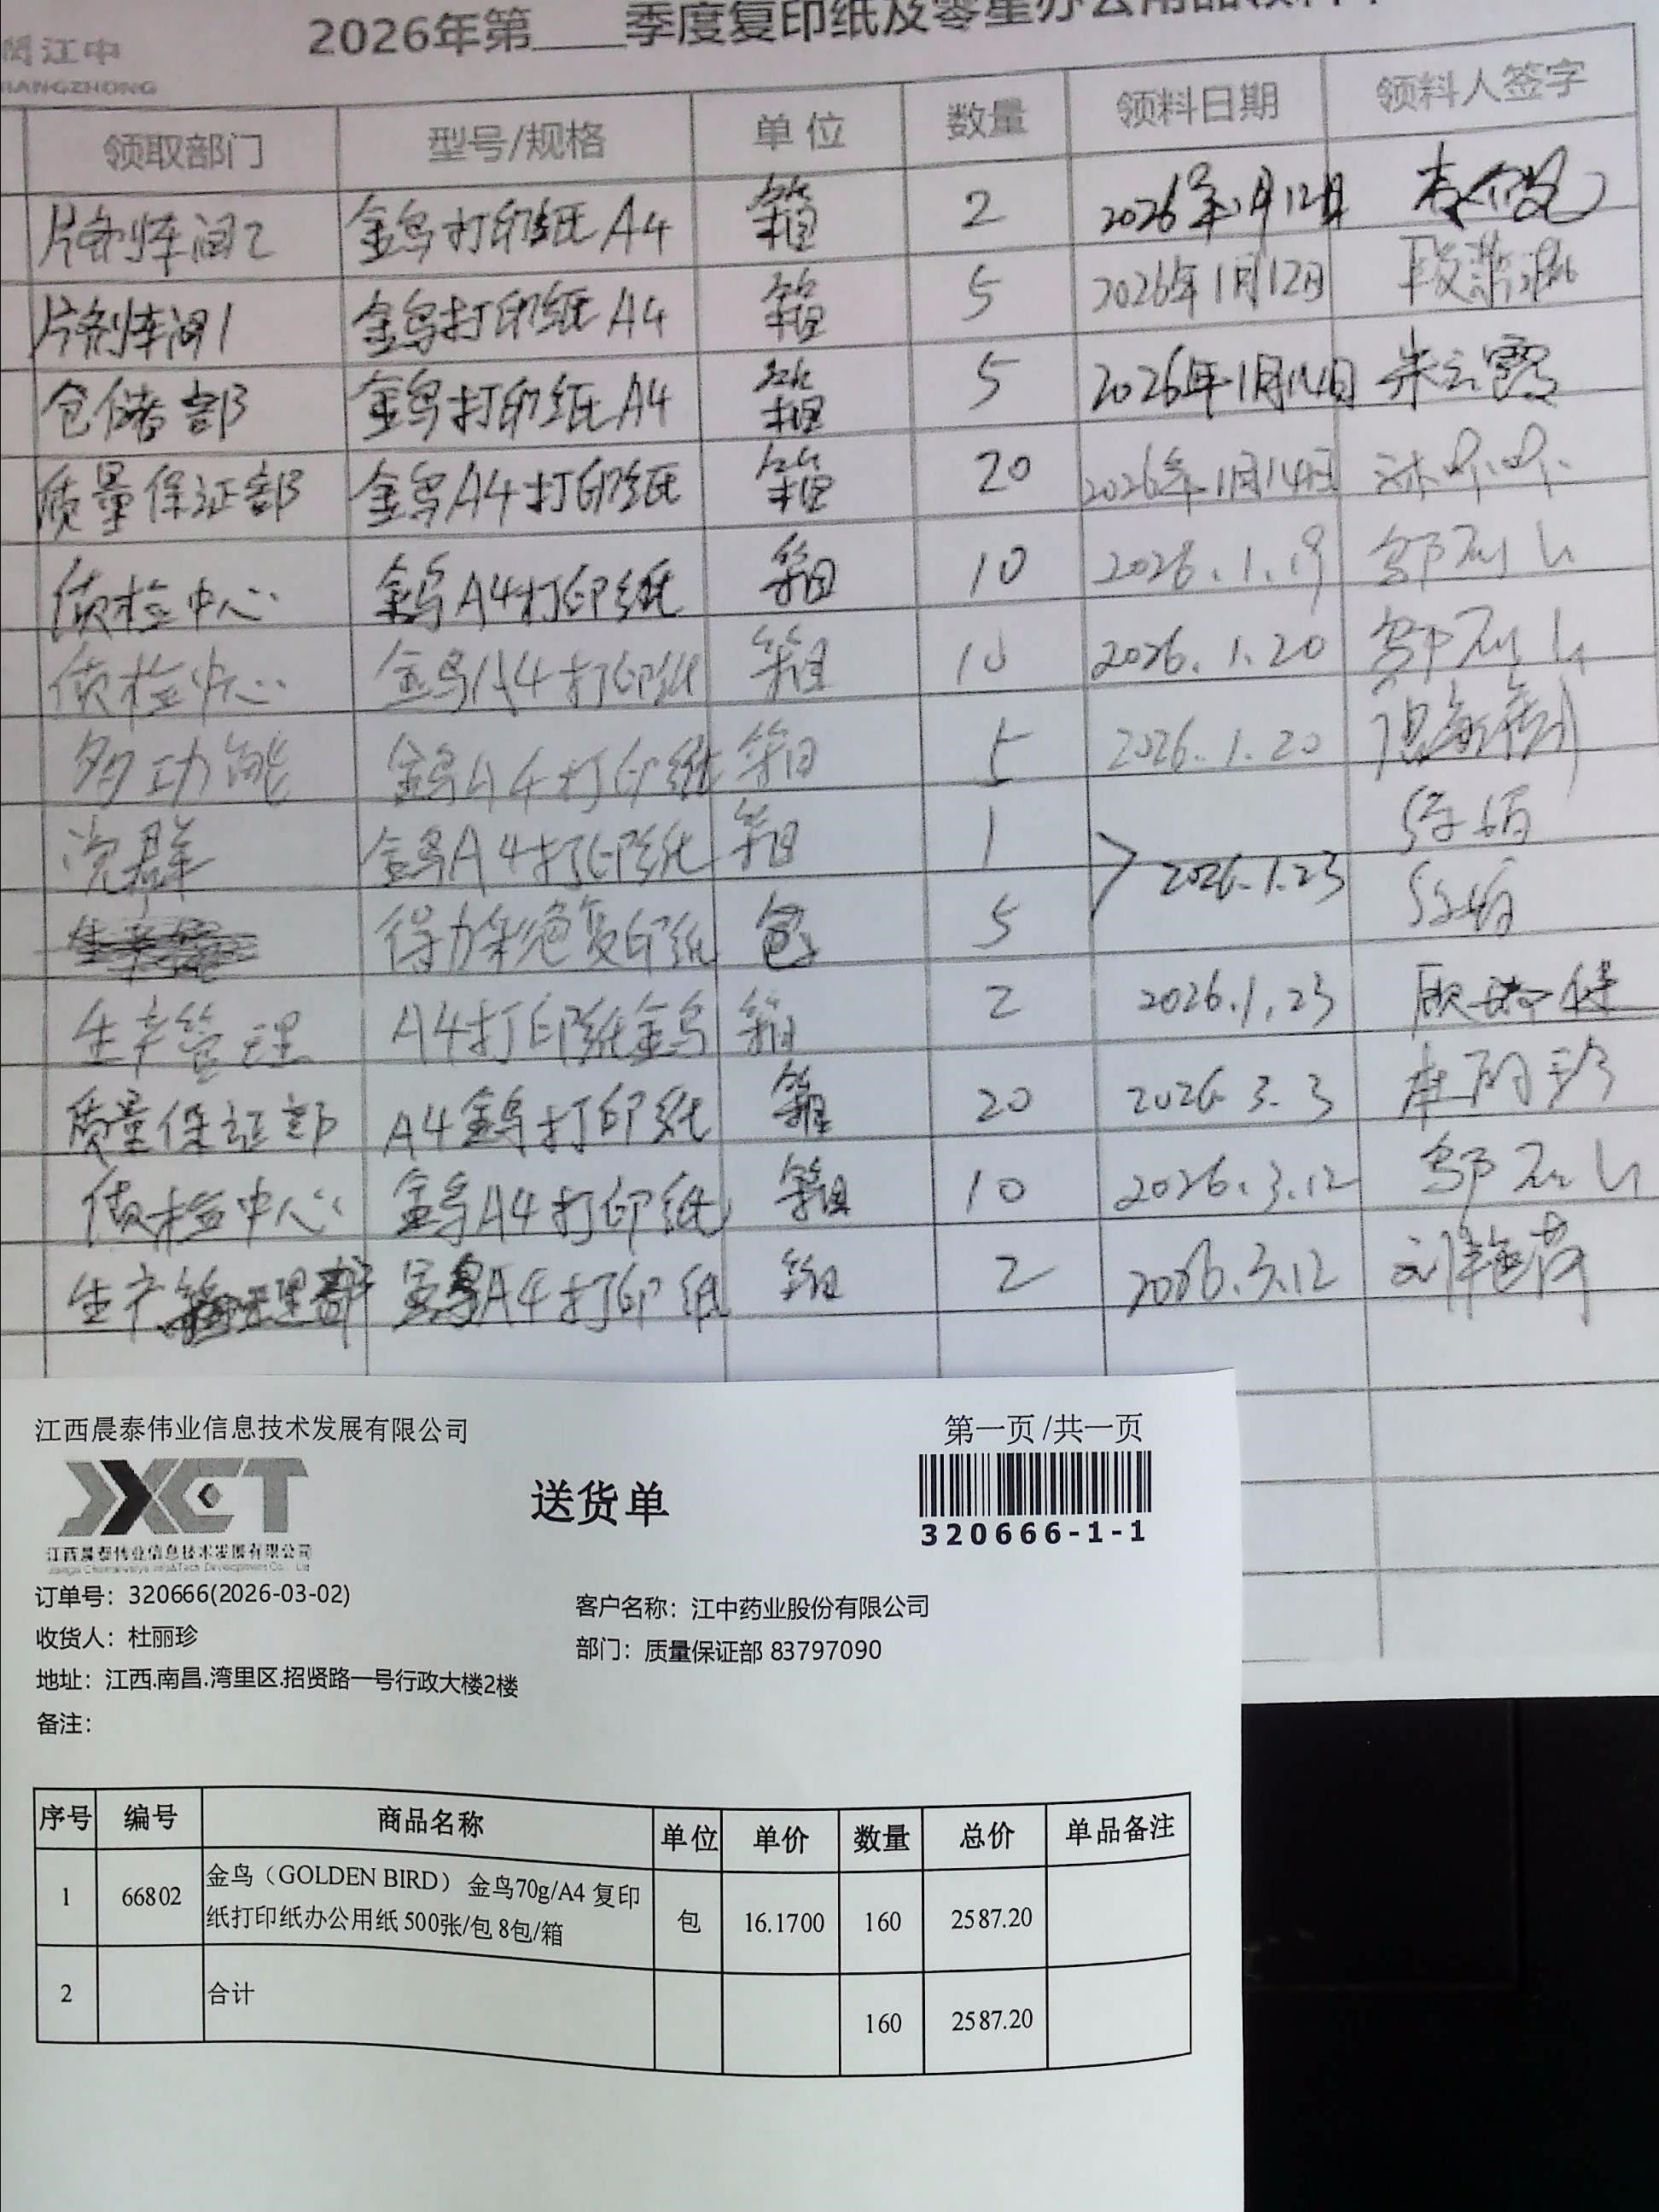 江中
JIANGZHONG
2026年第____季度复印纸及零星办公用品领料单
领取部门 型号/规格 单位 数量 领料日期 领料人签字
片剂车间2 金鸟打印纸A4 箱 2 2026年1月12日
片剂车间1 金鸟打印纸A4 箱 5 2026年1月12日
仓储部 金鸟打印纸A4 箱 5 2026年1月14日 朱云霞
质量保证部 金鸟A4打印纸 箱 20 2026年1月14日
质检中心 金鸟A4打印纸 箱 10 2026.1.19
质检中心 金鸟A4打印纸 箱 10 2026.1.20
多功能 金鸟A4打印纸 箱 5 2026.1.20
党群 金鸟A4打印纸 箱 1
得力彩色复印纸 包 5 2026.1.23
生产管理 A4打印纸金鸟 箱 2 2026.1.23
质量保证部 A4金鸟打印纸 箱 20 2026.3.3 杜丽珍
质检中心 金鸟A4打印纸 箱 10 2026.3.12
生产管理部 金鸟A4打印纸 箱 2 2026.3.12
江西晨泰伟业信息技术发展有限公司
第一页/共一页
JXCT
送货单
320666-1-1
江西晨泰伟业信息技术发展有限公司
订单号：320666(2026-03-02)
客户名称：江中药业股份有限公司
收货人：杜丽珍
部门：质量保证部 83797090
地址：江西.南昌.湾里区.招贤路一号行政大楼2楼
备注：
序号 编号 商品名称 单位 单价 数量 总价 单品备注
1 66802 金鸟（GOLDEN BIRD） 金鸟70g/A4 复印
纸打印纸办公用纸 500张/包 8包/箱 包 16.1700 160 2587.20
2 合计 160 2587.20